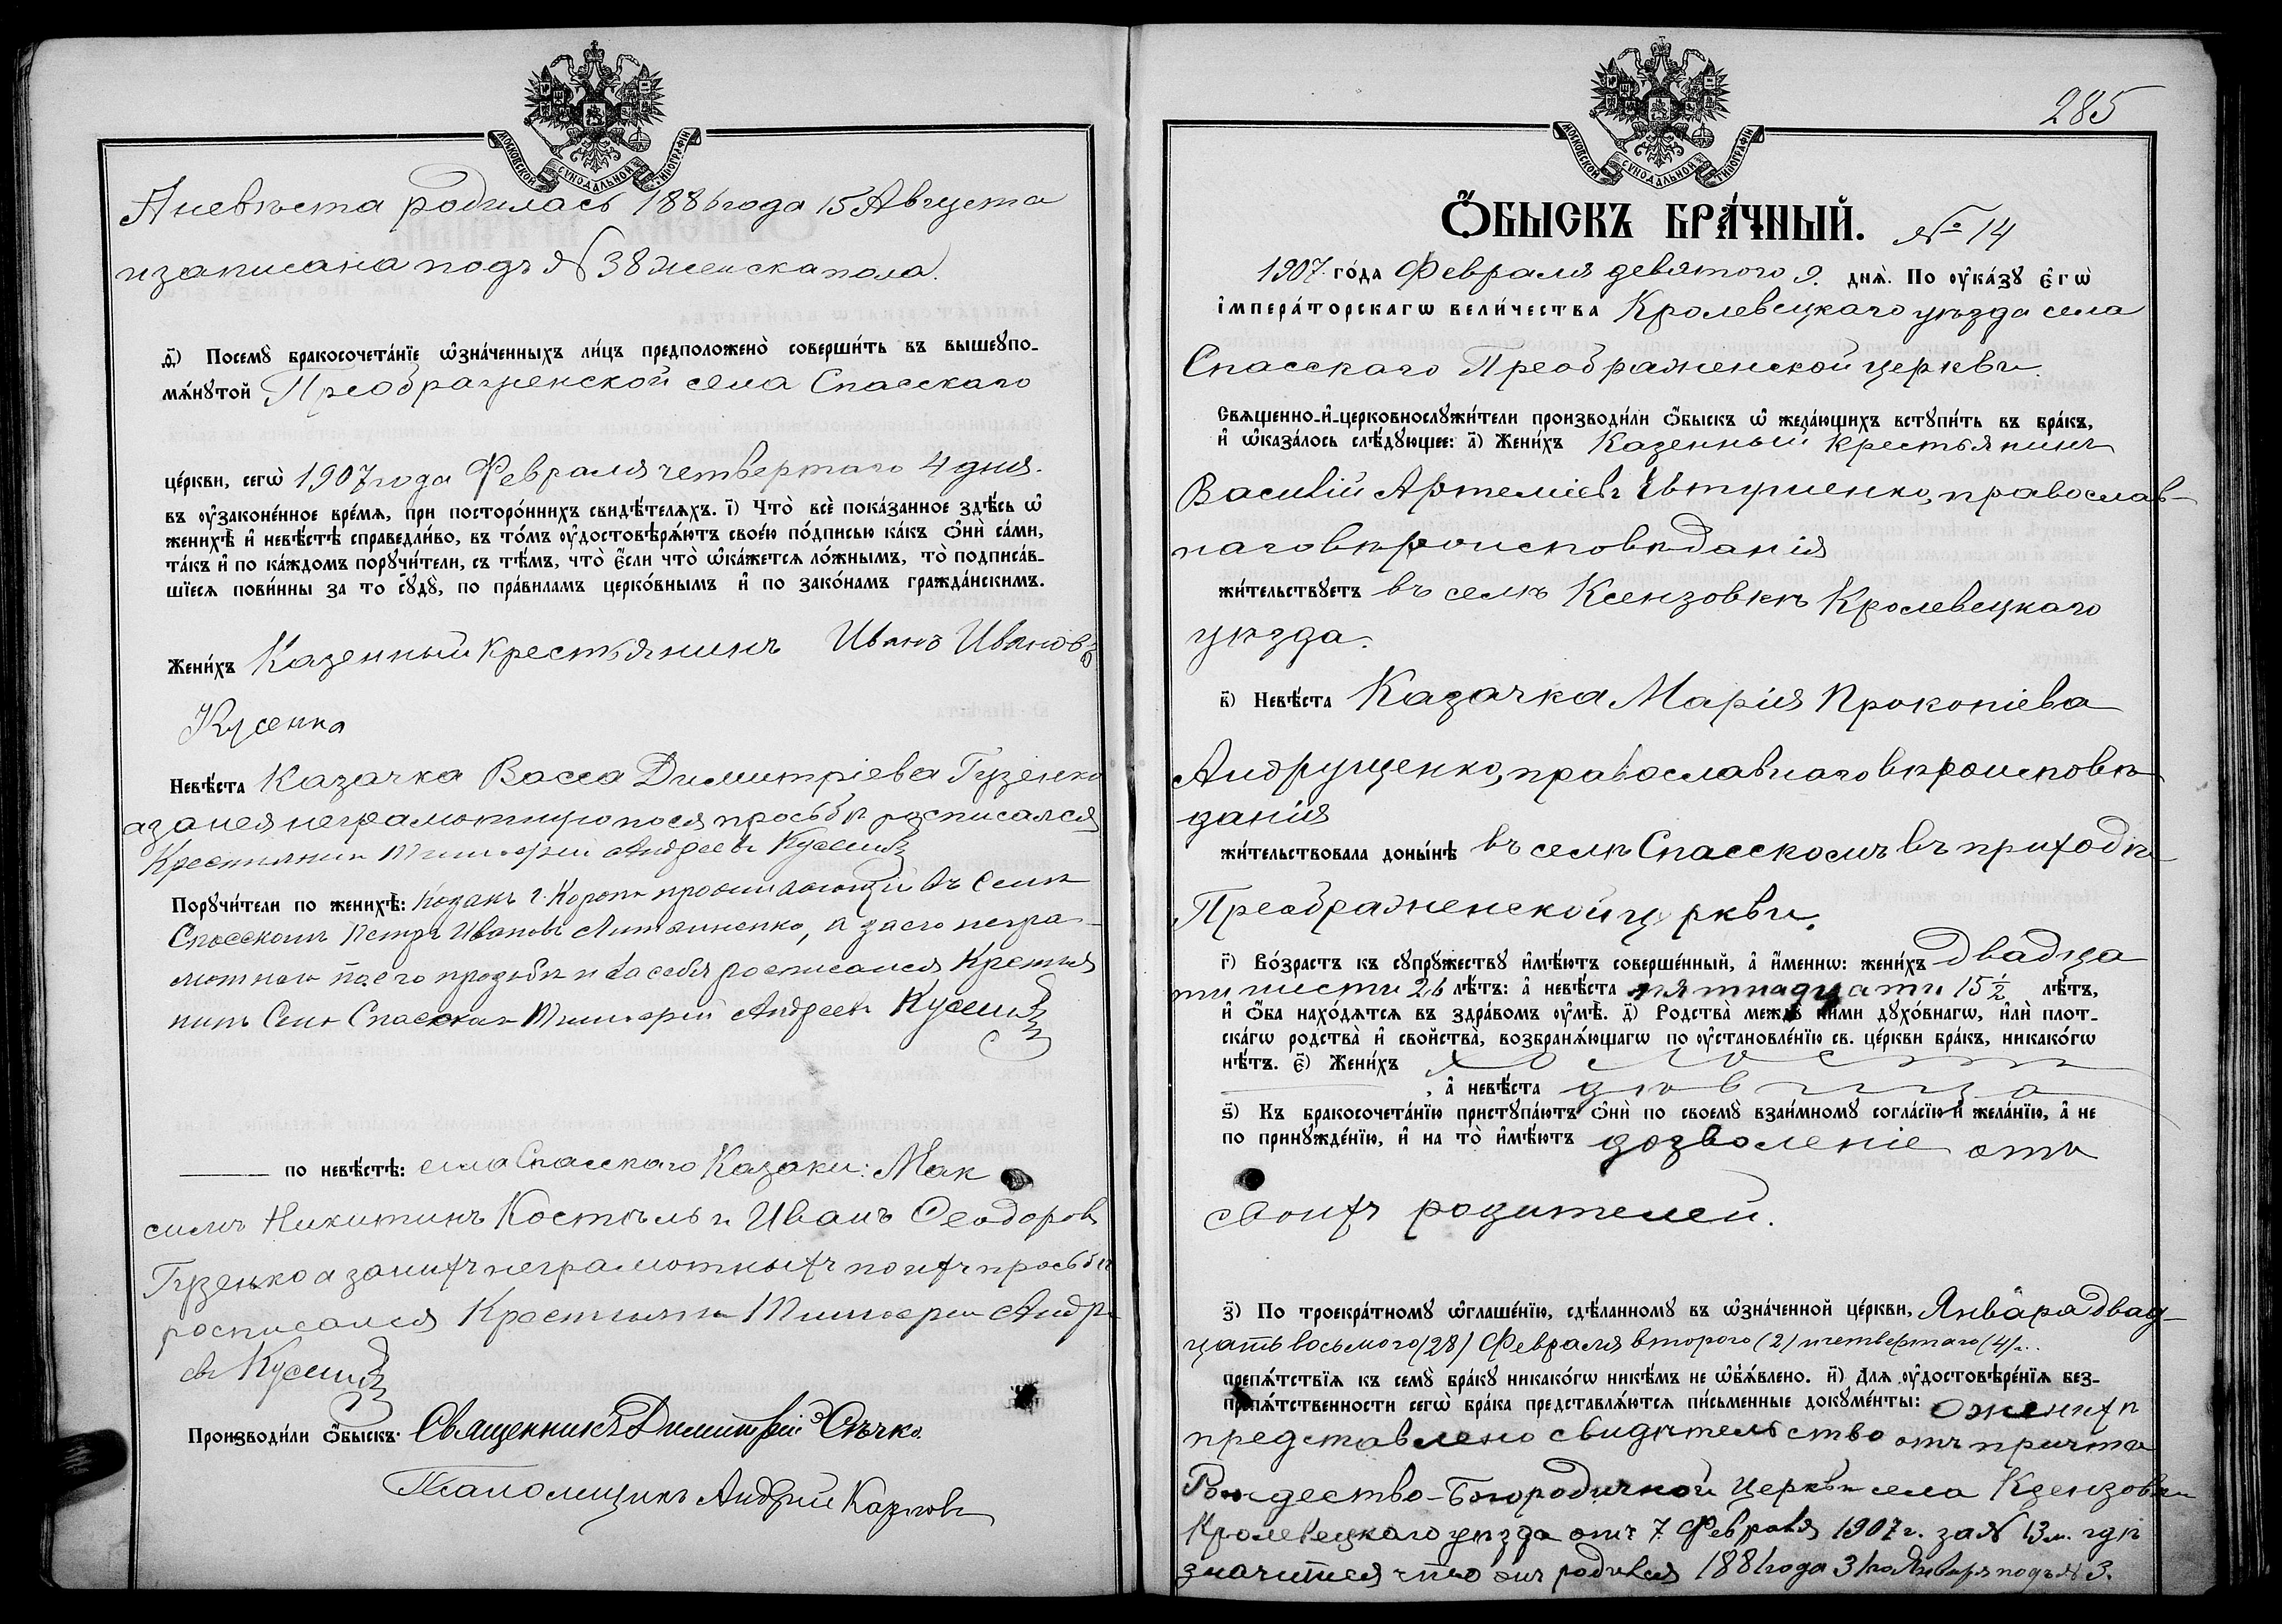 МОСКОВСКОЙ СУНОДАЛЬНОЙ ТИПОГРАФІИ
А невѣста родилась 1886 года 15 Августа
и записана подъ № 38 женска пола.
д҃) Посемꙋ̀ бракосочета́нїе ѡ҆зна́ченныхъ ли́цъ предположено̀ соверши́ть въ вышеꙋпо-
мѧ́нꙋтой Преображенской села Спасскаго
це́ркви, сегѡ̀ 1907 года Февраля четвертаго 4 дня.
въ ᲂу҆законе́нное вре́мѧ, при посторо́ннихъ свидѣ́телѧхъ. і҃) Что̀ всѐ пока́занное здѣ́сь ѡ҆
женихѣ̀ и҆ невѣ́стѣ справедли́во, въ то́мъ ᲂу҆достовѣрѧ́ютъ свое́ю по́дписью ка́къ ѻ҆нѝ са́ми,
та́къ и҆ по ка́ждомъ порꙋчи́тели, съ тѣ́мъ, что̀ є҆́сли что̀ ѡ҆ка́жетсѧ ло́жнымъ, то̀ подписа́в-
шїесѧ пови́нны за то сꙋдꙋ̀, по пра́виламъ церко́внымъ и҆ по зако́намъ гражда́нскимъ.
Жени́хъ Казенный крестьянинъ Иванъ Ивановъ
Кусенко
Невѣ́ста Казачка Васса Димитріева Гузенко
а за нея неграмотную по ея просьбѣ росписался
Крестьянин Тимофей Андреевъ Кусенко
Порꙋчи́тели по женихѣ̀: Козакъ г. Коропа проживающій въ Селѣ
Спасском Петръ Ивановъ Литвиненко, а за его негра-
мотнаго по его прозьби и за себя росписался Крестья
нинъ Села Спаскаго Тимофей Андреев Кусенко
по невѣ́стѣ: села Спасскаго Казаки: Мак
симъ Никитинъ Костѣль и Иванъ Ѳеодоровъ
Гузенько а за нихъ неграмотныхъ по ихъ просьбѣ
росписался Крестьянин Тимофей Андре
евъ Кусенко
Производи́ли ѻ҆́быскъ: Священникъ Димитрій Сѣчко.
Псаломщикъ Андрей Карповъ
285
МОСКОВСКОЙ СУНОДАЛЬНОЙ ТИПОГРАФІИ
Ѻ҆́БЫСКЪ БРА́ЧНЫЙ. № 14
1907 го́да Февраля девятого 9. днѧ̀. По ᲂу҆ка́зꙋ є҆гѡ̀
і҆мпера́торскагѡ вели́чества Кролевецкаго уѣзда села
Спасскаго Преображенской церкви
Свѧщенно-и҆-церковнослꙋжи́тели производи́ли ѻ҆́быскъ ѡ҆ жела́ющихъ встꙋпи́ть въ бра́къ,
и҆ ѡ҆каза́лось слѣ́дꙋющее: а҃) Жени́хъ Казенный крестьянинъ
Василій Артеміевъ Евтушенко, православ-
наго вѣроисповѣданія
жи́тельствꙋетъ въ селѣ Ксензовкѣ Кролевецкаго
уѣзда.
в҃) Невѣ́ста Казачка Марія Прокопіева
Андрущенко, православнаго вѣроисповѣ-
данія
жи́тельствовала доны́нѣ въ селѣ Спасскомъ въ приходѣ
Преображенской церкви.
г҃) Во́зрастъ къ сꙋпрꙋ́жествꙋ и҆мѣ́ютъ соверше́нный, а҆ и҆́меннѡ: жени́хъ двадца
ти шести 26 лѣ́тъ: а҆ невѣ́ста пятнадцати 15½ лѣ́тъ,
и҆ ѻ҆́ба нахо́дѧтсѧ въ здра́вомъ ᲂу҆мѣ̀. д҃) Родства̀ междꙋ̀ ни́ми дꙋхо́внагѡ, и҆лѝ плот-
ска́гѡ родства̀ и҆ сво́йства̀, возбранѧ́ющагѡ по ᲂу҆становле́нїю св. це́ркви бра́къ, никако́гѡ
нѣ́тъ. є҃) Жени́хъ холостъ
, а҆ невѣ́ста дѣвица
ѕ҃) Къ бракосочета́нїю пристꙋпа́ютъ ѻ҆нѝ по своемꙋ̀ взаи́мномꙋ согла́сїю и҆ жела́нїю, а҆ не
по принꙋжде́нїю, и҆ на то̀ и҆мѣ́ютъ дозволеніе отъ
своихъ родителей.
з҃) По троекра́тномꙋ ѡ҆глаше́нїю, сдѣ́ланномꙋ въ ѡ҆зна́ченной це́ркви, Января двад-
цать восьмого (28) Февраля второго (2) и четвертаго (4)...
препѧ́тствїѧ къ семꙋ̀ бра́кꙋ никако́гѡ никѣ́мъ не ѡ҆б̾ѧ́влено. и҃) Для ᲂу҆достовѣре́нїѧ без-
препѧ́тственности сегѡ̀ бра́ка представлѧ́ютсѧ пи́сьменные докꙋме́нты: о женихѣ
представлено свидѣтельство отъ причта
Рождество-Богородичной церкви села Ксензовки
Кролевецкаго уѣзда отъ 7 Февраля 1907 г. за № 13 м. гдѣ
значится что онъ родился 1881 года 31 го Января подъ № 3.